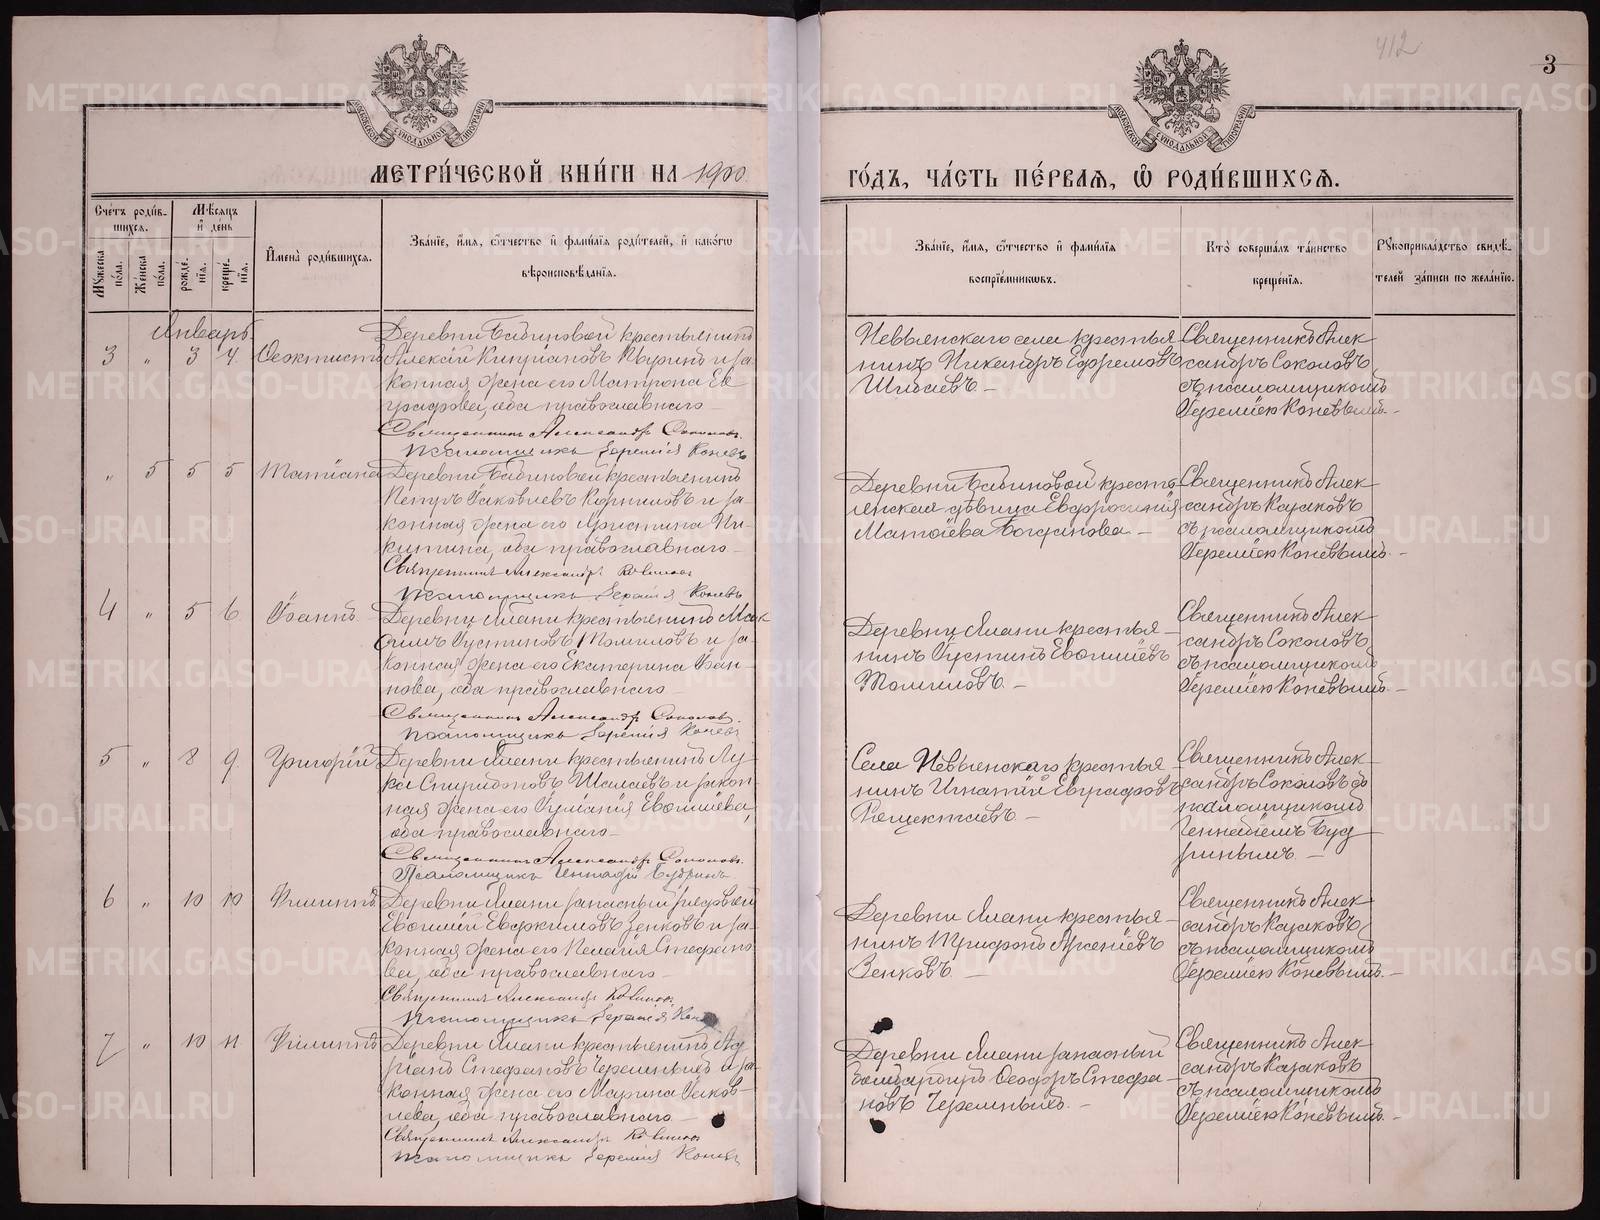 412
3
МОСКОВСКОЙ СѴНОДАЛЬНОЙ ТИПОГРАФІИ
МОСКОВСКОЙ СѴНОДАЛЬНОЙ ТИПОГРАФІИ
МЕТРИЧЕСКОЙ КНИГИ НА 1900
ГОДЪ, ЧАСТЬ ПЕРВАЯ, Ѡ РОДИВШИХСЯ.
Счетъ родив-
шихся.
Мѣсяцъ
и день
Мужеска
пола.
Женска
пола.
рожде-
нія.
креще-
нія.
Имена родившихся.
Званіе, имя, отчество и фамилія родителей, и какогѡ
вѣроисповѣданія.
Званіе, имя, отчество и фамилія
воспріемниковъ.
Кто совершалъ таинство
крещенія.
Рукоприкладство свидѣ-
телей записи по желанію.
Январь
3 " 3 4 Ѳеоктистъ
Деревни Бабиновой крестьянинъ
Алексій Кипріановъ и за-
конная жена его Матрона Ев
графова, оба православнаго
Священникъ Александръ Соколовъ.
Псаломщикъ Іеремія Коневъ
Невьянскаго села крестья
нинъ Никандръ Ефремовъ
Священникъ Алек
сандръ Соколовъ
съ псаломщикомъ
Іереміею Коневымъ.
" 5 5 5 Татіана
Деревни Бабиновой крестьянинъ
Петръ Іаковлевъ Корниловъ и за-
конная жена его Христина Ни
китина, оба православнаго
Священникъ Александръ
Псаломщикъ Іеремія Коневъ
Деревни Бабиновой кресть
янская дѣвица Евфросинія
Матѳіева Богданова.
Священникъ Алек
сандръ Казаковъ
съ псаломщикомъ
Іереміею Коневымъ.
4 " 5 6 Іоаннъ
Деревни Ялани крестьянинъ Мак
симъ Іустиновъ Томиловъ и за-
конная жена его Екатерина Іоан-
нова, оба православнаго
Священникъ Александръ Соколовъ.
Псаломщикъ Іеремія Коневъ
Деревни Ялани крестья
нинъ Іустинъ Евѳиміевъ
Томиловъ.
Священникъ Алек
сандръ Соколовъ
съ псаломщикомъ
Іереміею Коневымъ.
5 " 8 9 Григорій
Деревни Ялани крестьянинъ Лу-
ка Спиридоновъ и закон-
ная жена его Іуліанія Евѳиміева,
оба православнаго
Священникъ Александръ Соколовъ.
Псаломщикъ Геннадій Будринъ
Села Невьянскаго крестья
нинъ Игнатій Евграфовъ
Священникъ Алек
сандръ Соколовъ съ
псаломщикомъ
Геннадіемъ Буд
ринымъ.
6 " 10 10 Филиппъ
Деревни Ялани запасный рядовой
Евѳимій Евдокимовъ Зенковъ и за-
конная жена его Пелагія Стефано
ва, оба православнаго
Священникъ Александръ
Псаломщикъ Іеремія
Деревни Ялани крестья-
нинъ Трифонъ Арсеніевъ
Зенковъ
Священникъ Алек
сандръ Казаковъ
съ псаломщикомъ
Іереміею Коневымъ.
7 " 10 11 Филиппъ
Деревни Ялани крестьянинъ Ад
ріанъ Стефановъ Черемныхъ и за-
конная жена его Марина Іаков-
лева, оба православнаго
Священникъ Александръ
Псаломщикъ Іеремія Коневъ
Деревни Ялани запасный
бомбардиръ Ѳеодоръ Стефа-
новъ Черемныхъ.
Священникъ Алек
сандръ Казаковъ
съ псаломщикомъ
Іереміею Коневымъ.
METRIKI.GASO-URAL.RU